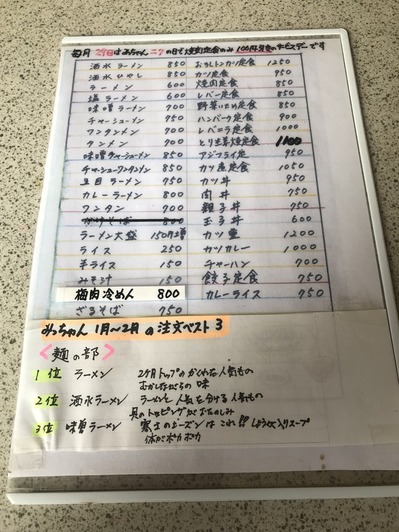 毎月29日はみっちゃんニクの日で焼肉定食のみ100円引きのサービスデーです
酒水ラーメン 850
酒水ひやし 850
ラーメン 600
塩ラーメン 600
味噌ラーメン 700
チャーシューメン 950
ワンタンメン 700
タンメン 700
味噌チャーシューメン 850
チャーシューワンタンメン 850
五目ラーメン 750
カレーラーメン 800
ワンタン 700
かけそば 800
ラーメン大盛 150円増
ライス 250
半ライス 150
みそ汁 150
梅肉冷めん 800
ざるそば 750
おろしトンカツ定食 1250
カツ定食 950
焼肉定食 850
レバー定食 850
野菜いため定食 850
ハンバーグ定食 900
レバニラ定食 1000
とり生姜焼定食 1100
アジフライ定 950
カツ皿定食 1050
カツ丼 950
肉丼 950
親子丼 950
玉子丼 600
カツ重 1200
カツカレー 1000
チャーハン 700
餃子定食 750
カレーライス 750
みっちゃん 1月〜2月の注文ベスト3
<麺の部>
1位 ラーメン 2ケ月トップのがくれな人気もの
むかしながらの味
2位 酒水ラーメン ラーメンと人気を分ける人気もの
具のトッピングがおたのしみ
3位 味噌ラーメン 寒さのシーズンはこれ!! しょうが入りスープ
体がポカポカ